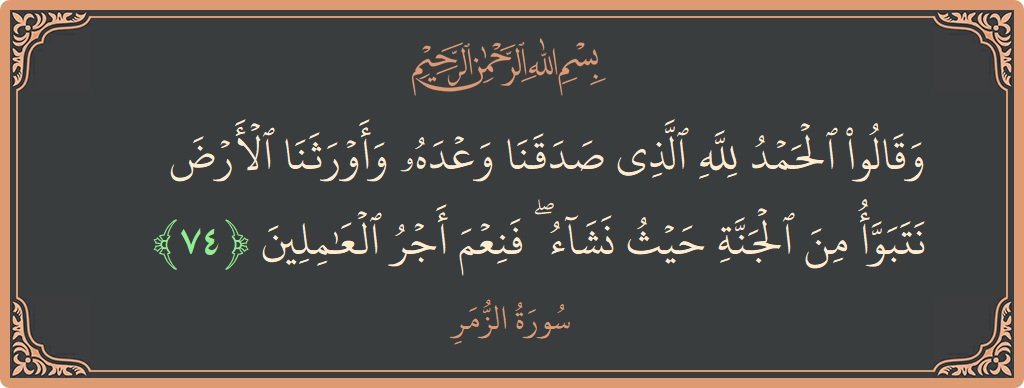 بِسْمِ اللَّهِ الرَّحْمَٰنِ الرَّحِيمِ
وَقَالُوا۟ ٱلْحَمْدُ لِلَّهِ ٱلَّذِى صَدَقَنَا وَعْدَهُۥ وَأَوْرَثَنَا ٱلْأَرْضَ
نَتَبَوَّأُ مِنَ ٱلْجَنَّةِ حَيْثُ نَشَآءُ ۖ فَنِعْمَ أَجْرُ ٱلْعَـٰمِلِينَ ﴿٧٤﴾
سُورَةُ الزُّمَرِ